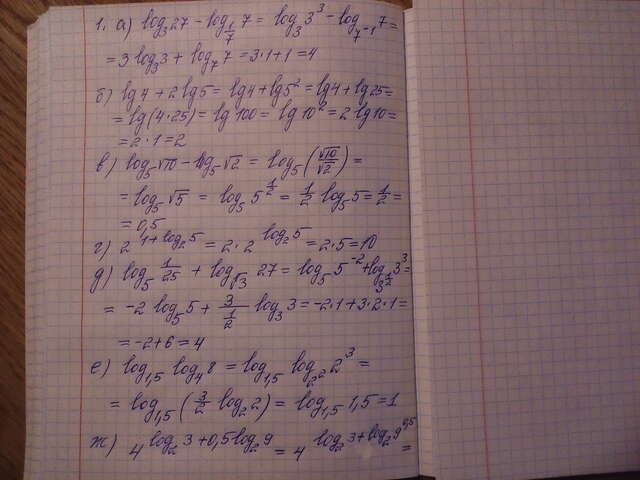 1. а) log₃27 - log_{1/7} 7 = log₃3³ - log_{7⁻¹} 7 =
= 3 log₃3 + log₇7 = 3·1+1 = 4
б) lg4 + 2lg5 = lg4 + lg5² = lg4 + lg25 =
= lg(4·25) = lg100 = lg10² = 2 lg10 =
= 2·1 = 2
в) log₅√10 - log₅√2 = log₅(√10/√2) =
= log₅√5 = log₅5^{1/2} = 1/2 log₅5 = 1/2 =
= 0,5
г) 2^{1+log₂5} = 2·2^{log₂5} = 2·5 = 10
д) log₅ 1/25 + log_{√3} 27 = log₅5⁻² + log_{3^{1/2}} 3³ =
= -2 log₅5 + 3/(1/2) log₃3 = -2·1+3·2·1 =
= -2+6 = 4
е) log_{1,5} log₄8 = log_{1,5} log_{2²} 2³ =
= log_{1,5} (3/2 log₂2) = log_{1,5} 1,5 = 1
ж) 4^{log₂3+0,5log₂9} = 4^{log₂3+log₂9^{0,5}} =